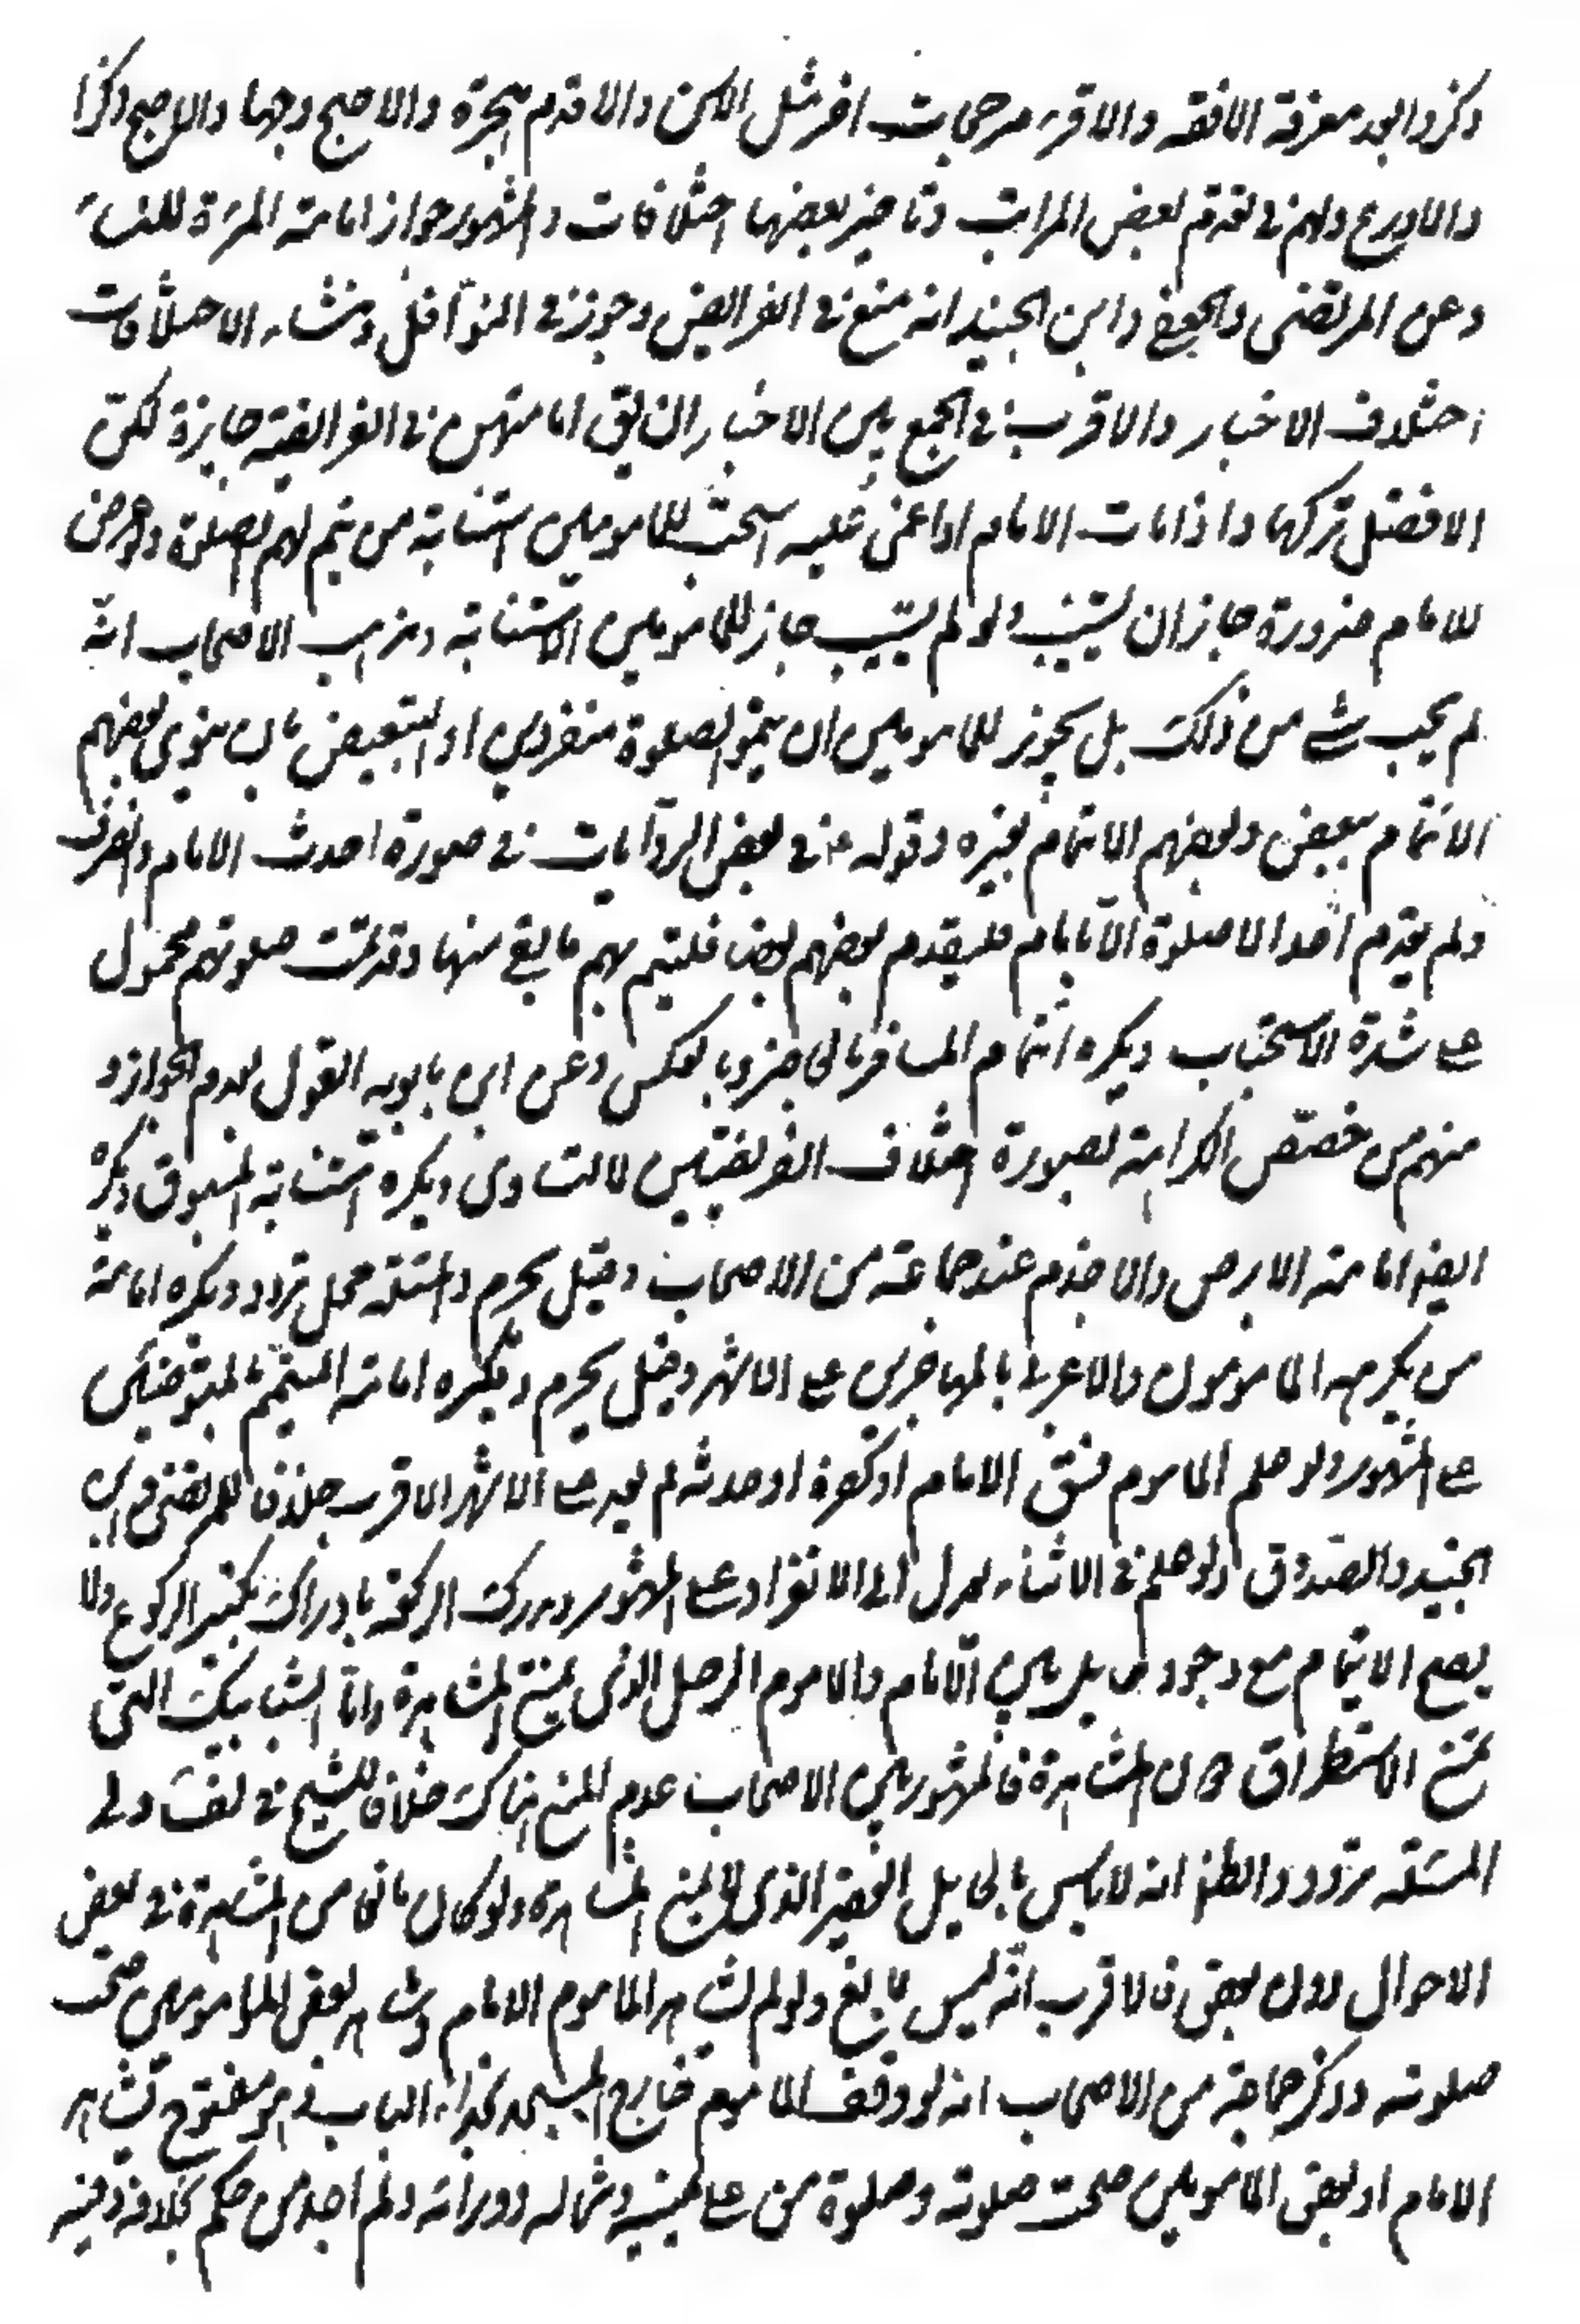 ذكروا بعد معرفة الافقه والاقرء مرجحات اخر مثل الاسن والاقدم هجرة والاصبح وجها والارجح ذكرا
والاورع ولهم في تقدم بعض المراتب وتاخير بعضها اختلافات والمشهور جواز امامة المرءة للنساء
وعن المرتضى والجعفي وابن الجنيد انه منع في الفرايض وجوز في النوافل ومنشاء الاختلافات
اختلاف الاخبار والاقرب في الجمع بين الاخبار ان يق امامتهن في الفرايض جايزة لكن
الافضل تركها واذا مات الامام او اغمي عليه استحب للمامومين استنابة من يتم لهم الصلوة ولو عرض
للامام ضرورة جاز ان يستنيب ولو لم يستنب جاز للمامومين الاستنابة ومذهب الاصحاب انه
لم يجب شئ من ذلك بل يجوز للمامومين ان يتموا الصلوة منفردين او التبعيض بان ينوي بعضهم
الائتمام ببعض وبعضهم الايتمام بغيره وقوله ع في بعض الروايات في صورة احدث الامام وانصرف
ولم يقدم احدا لا صلوة الا بامام فليقدم بعضهم بعضا فليتم بهم ما بقي منها وقد تمت صلوتهم محمول
على شدة الاستحباب ويكره ائتمام المسافر بالحاضر وبالعكس وعن ابن بابويه القول بعدم الجواز و
منهم من خصص الكراهة بصورة اختلاف الفريضتين لا التساوي ويكره استنابة المسبوق ويكره
ايضا امامة الابرص والاجذم عند جماعة من الاصحاب وقيل يحرم والمسئلة محل تردد ويكره امامة
من يكرهه المامومون والاعرابي بالمهاجرين على الاشهر وقيل يحرم ويكره امامة المتيمم بالمتوضئين
على المشهور ولو علم الماموم فسق الامام او كفره او حدثه لم يعد على الاشهر الاقرب خلافا للمرتضى وابن
الجنيد والصدوق ولو علم في الاثناء عدل الى الانفراد على المشهور ويدرك الركعة بادراك تكبير الركوع ولا
يصح الايتمام مع وجود حايل بين الامام والماموم الرجل الذي يمنع المشاهدة واما الشبابيك التي
تمنع الاستطراق دون المشاهدة فالمشهور بين الاصحاب عدم المنع هناك خلافا للشيخ في لفت ولى
المسئلة تردد والظ انه لا باس بالحايل القصير الذي لا يمنع المشاهدة ولو كان مانعا من المشاهدة في بعض
الاحوال دون بعض فالاقرب انه ليس بمانع ولو لم يشاهد الماموم الامام وشاهد بعض المامومين صحت
صلوته وذكر جماعة من الاصحاب انه لو وقف الماموم خارج المسجد بحذاء الباب وهو مفتوح يشاهد
الامام او بعض المامومين صحت صلوته وصلوة من على يمينه وشماله وورائه ولم اجد من حكم بخلافه وفيه